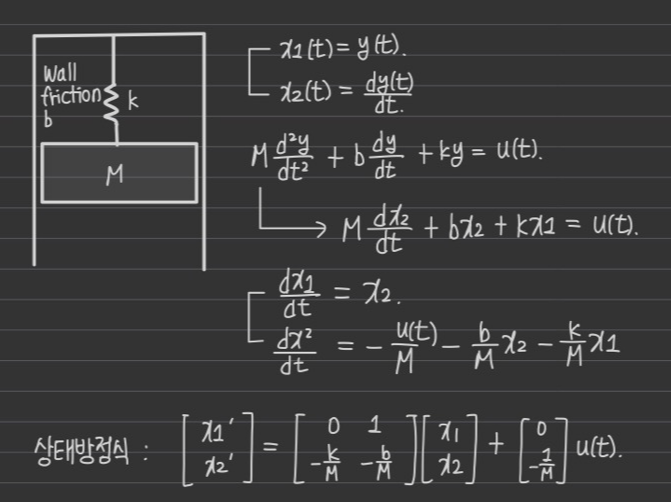 Wall
friction
b
k
M
x1(t) = y(t).
x2(t) = dy(t)/dt.
M d²y/dt² + b dy/dt + ky = u(t).
M dx2/dt + bx2 + kx1 = u(t).
dx1/dt = x2.
dx²/dt = - u(t)/M - b/M x2 - k/M x1
상태방정식 : [x1′ x2′] = [0 1 -k/M -b/M] [x1 x2] + [0 -1/M] u(t).